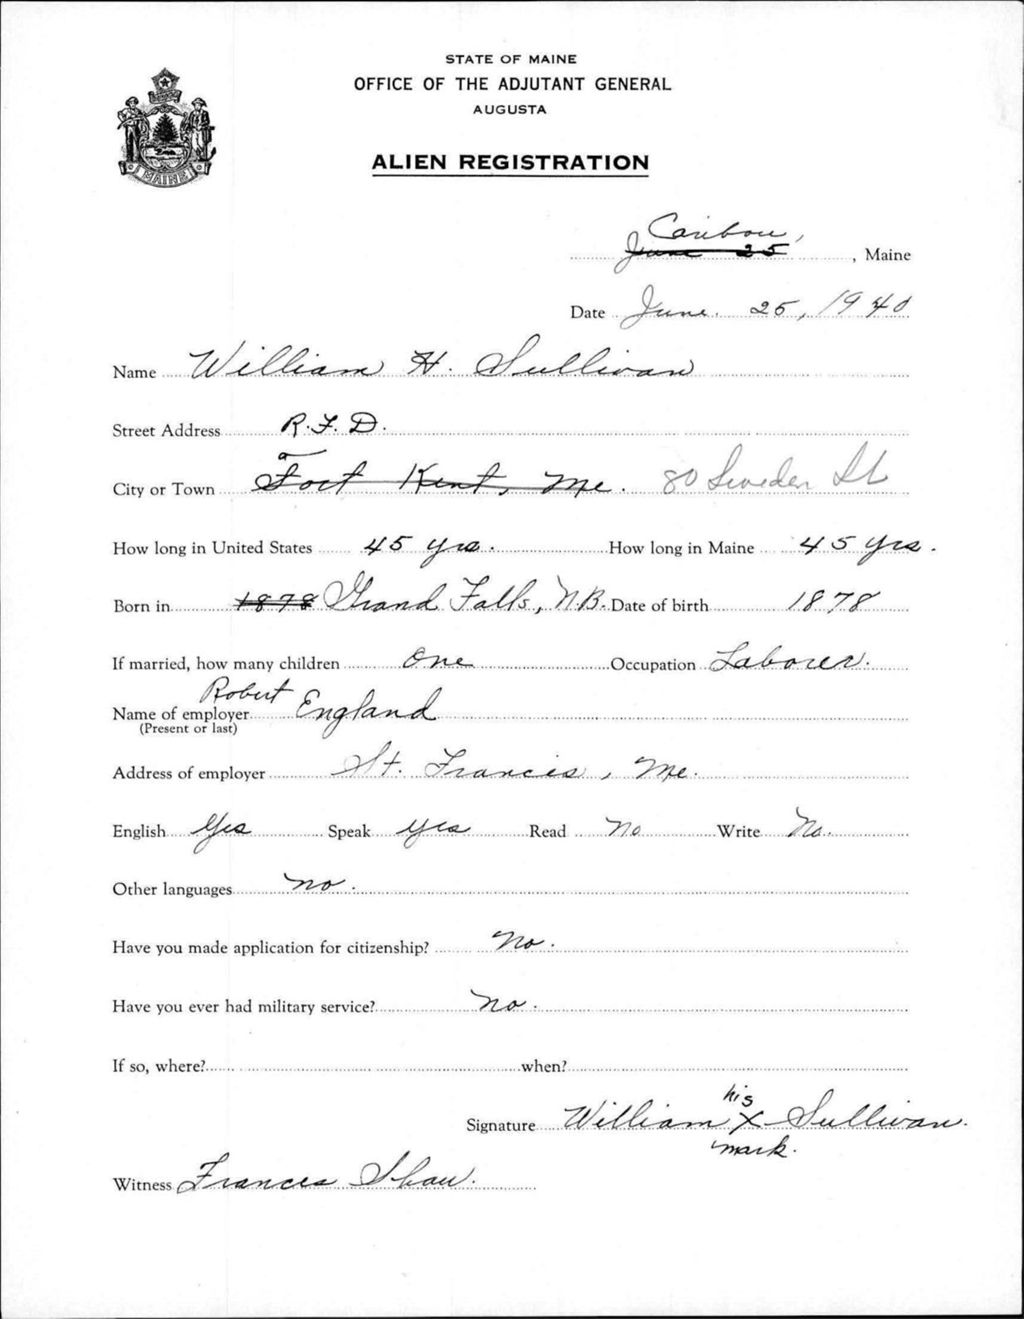 STATE OF MAINE
OFFICE OF THE ADJUTANT GENERAL
AUGUSTA
ALIEN REGISTRATION
MAINE
Caribou,
June 25, Maine
Date June. 25, 1940
Name William H. Sullivan
Street Address R.F.D.
City or Town Fort Kent, Me. 80 Sweden St
How long in United States 45 yrs. How long in Maine 45 yrs.
Born in 1878 Grand Falls, N.B. Date of birth 1878
If married, how many children One Occupation Laborer.
Robert
Name of employer England
(Present or last)
Address of employer St. Francis, Me.
English Yes Speak yes Read No Write No.
Other languages no.
Have you made application for citizenship? No.
Have you ever had military service? No.
If so, where? when?
his
Signature William X Sullivan.
mark.
Witness Frances Shaw.